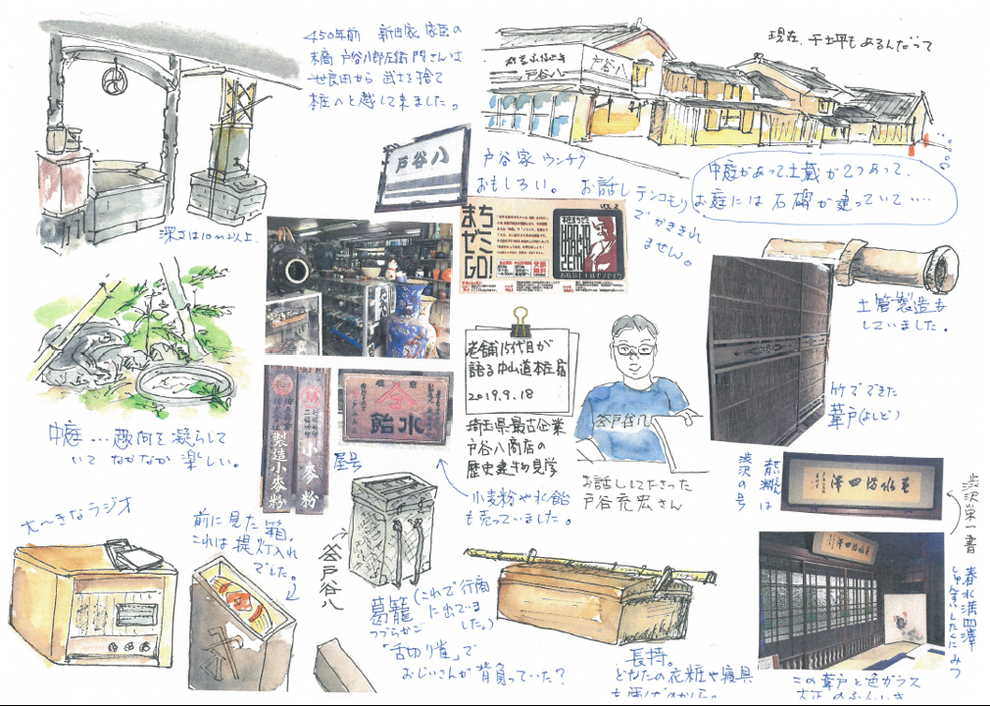 450年前 新田家 家臣の
本橋 戸谷八郎左衛門さんは
世良田から 武士を捨て
本庄へと越して来ました。
現在、干土平もあるんだって
戸谷八
戸谷八
戸谷八
戸谷家 ウンチク
おもしろい。お話し テンコモリ
でかききれ
ません。
中庭があって土蔵が2つあって、
お庭には 石碑が建っていて・・・・
深さは10m以上。
まち
ゼミ
GO!
VOL.2
土管製造も
していました。
老舗15代目が
語る中山道本庄宿
2019.9.18
埼玉県最古企業
戸谷八商店の
歴史建物見学
戸谷八
お話ししてくださった
戸谷充宏さん
竹でできた
葦戸(よしど)
中庭・・・趣向を凝らして
いて なかなか 楽しい。
製造小麥粉
小麥粉
水飴
屋号
戸谷八
小麦粉や水飴
も売っていました。
青淵は
渋沢の号
春水満四澤
渋沢栄一書
春水満四澤
しゅんすいしたくにみつ
大〜きなラジオ
前に見た箱。
これは提灯入れ
でした。
葛籠
つづらかご
(これで行商
に出ていま
した。)
「舌切り雀」で
おじいさんが背負っていた?
長持。
どなたの衣粧や寝具
この葦戸と色ガラス